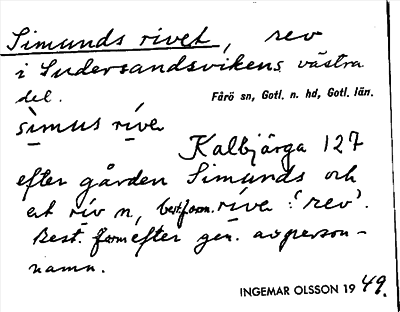 Simunds rivet, rev
i Sudersandsvikens västra
del. Fårö sn, Gotl. n. hd, Gotl. län.
sìmus ríve
Kalbjärga 127
efter gården Simunds och
ert riv n, best.form. ríve: 'rev'.
Best. form efter gen. av person-
namn.
INGEMAR OLSSON 1949.